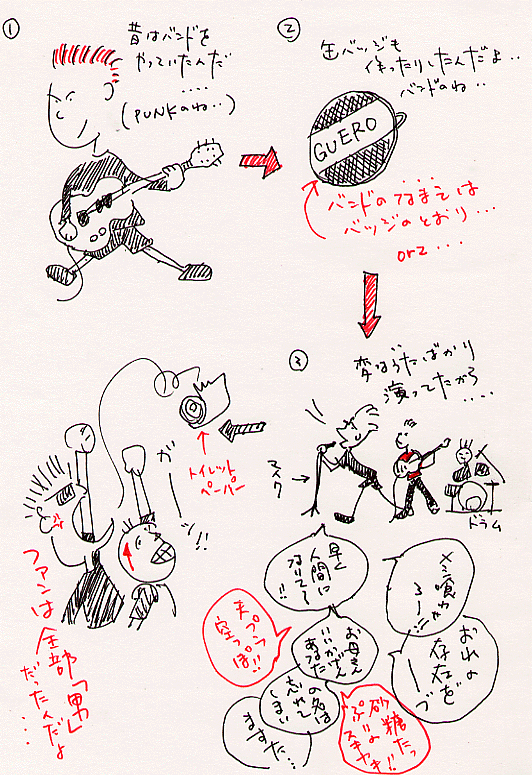 ①
昔はバンドを
やっていたんだ
‥‥
(PUNKのね‥)
②
缶バッジも
作ったりしたんだよ‥
バンドのね‥
GUERO
‥‥
バンドのなまえは
バッジのとおり‥‥
orz‥‥
③
変なうたばかり
演ってたから
‥‥
マスク
ドラム
早く
人間に
なりて〜
!!
メシ喰わせ
ろー!!
おれの
存在を
ーーーッ
天プラ
空っぽ!!
お母さん
いいかげん
あなた
の名は
忘れて
しまい
ますた…
砂糖たっ
ぷりの
スキヤキ!!
トイレット
ペーパー
ガーーン!!
ファンは全部「男」
だったんだよ‥‥